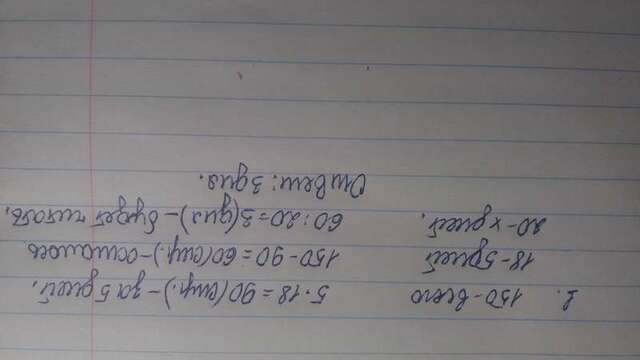 2. 150-всего 5·18=90(стр.)-за 5 дней.
18-5дней 150-90=60(стр.)-осталось
20-х дней. 60:20=3(дня)-будет читать.
Ответ: 3 дня.